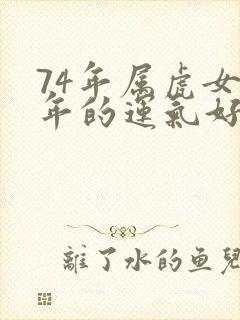 74年属虎女
年的运气好
離了水的鱼兒